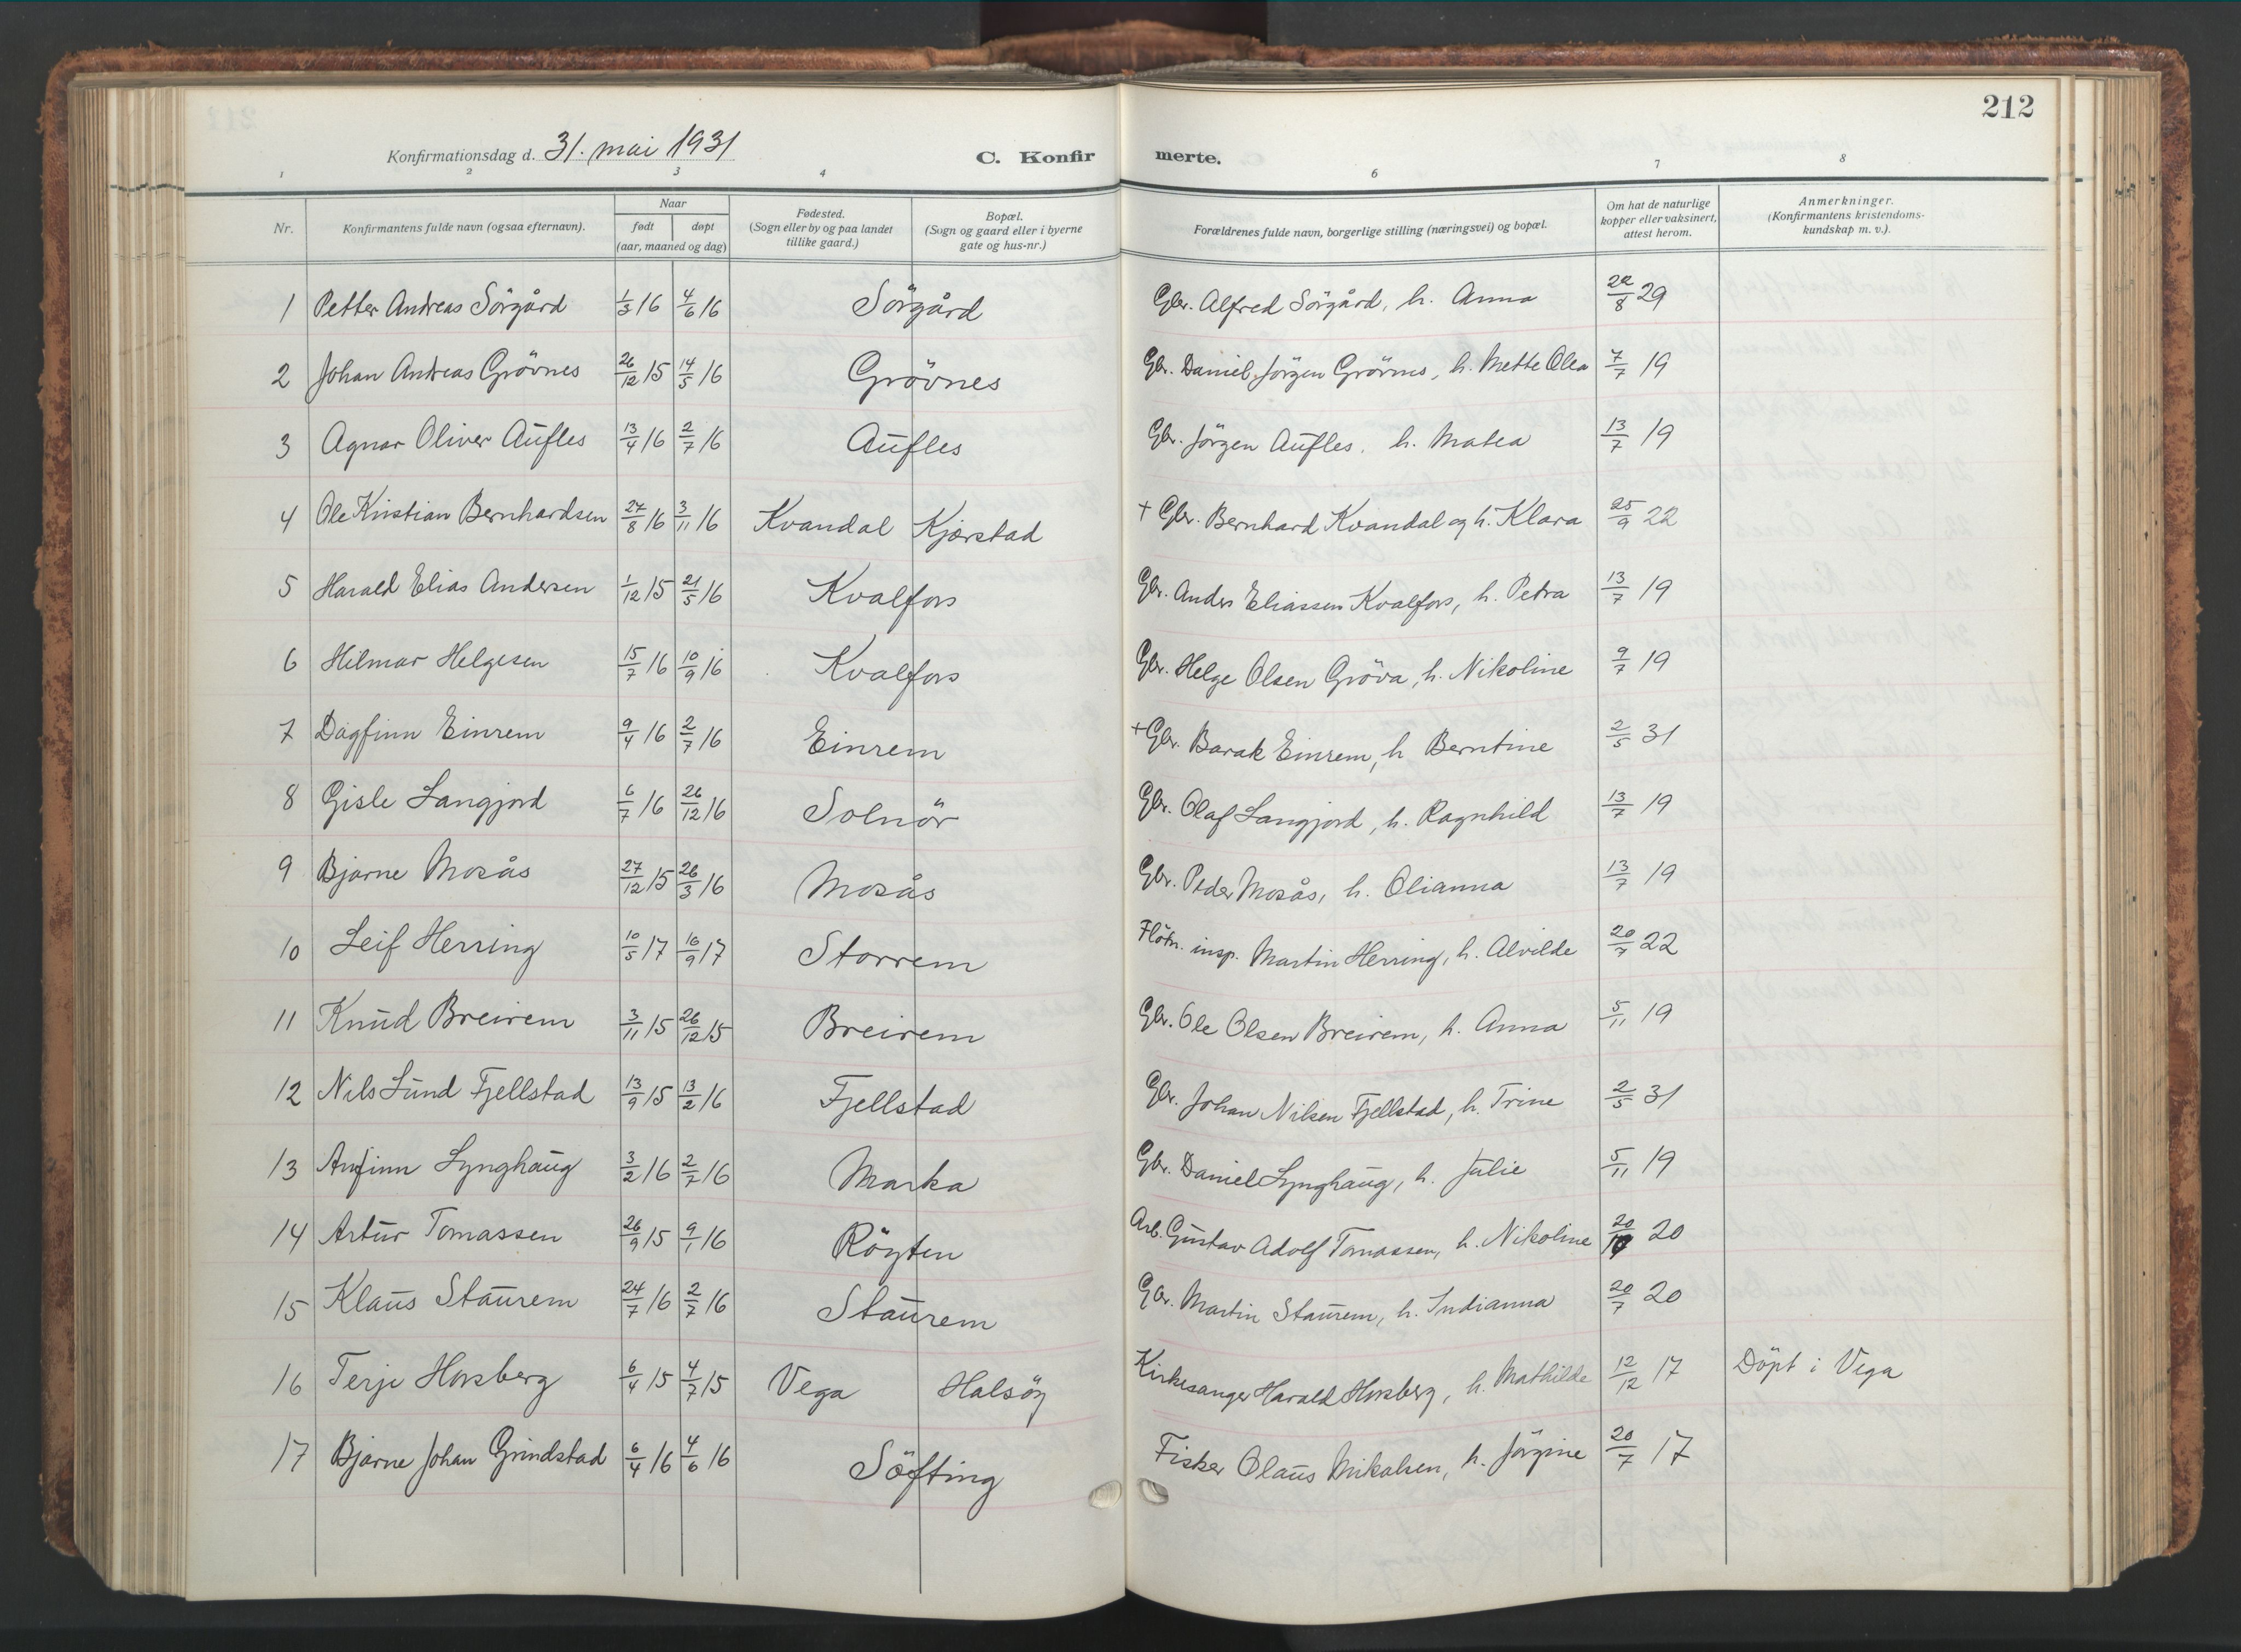 212
Konfirmationsdag d. 31. mai 1931 C. Konfirmerte.
1 2 3 4 6 7 8
Nr. Konfirmantens fulde navn (ogsaa efternavn). Naar født døpt (aar, maaned og dag) Fødested. (Sogn eller by og paa landet tillike gaard.) Bopæl. (Sogn og gaard eller i byerne gate og hus-nr.) Forældrenes fulde navn, borgerlige stilling (næringsvei) og bopæl. Om hat de naturlige kopper eller vaksinert, attest herom. Anmerkninger. (Konfirmantens kristendoms-kundskap m. v.).
1 Petter Andreas Sörgård 1/3 16 4/6 16 Sörgård Gbr. Alfred Sörgård, h. Anna 22/8 29
2 Johan Andreas Grövnes 26/12 15 14/5 16 Grövnes Gbr. Daniel Jörgen Grövnes, h. Mette Olea 7/7 19
3 Agnar Oliver Aufles 13/4 16 2/7 16 Aufles Gbr. Jörgen Aufles, h. Matea 13/7 19
4 Ole Kristian Bernhardsen 27/8 16 3/11 16 Kvandal Kjærstad + Gbr. Bernhard Kvandal og h. Klara 25/9 22
5 Harald Elias Andersen 1/12 15 21/5 16 Kvalfors Gbr. Anders Eliassen Kvalfors, h. Petra 13/7 19
6 Hilmar Helgesen 15/7 16 10/9 16 Kvalfors Gbr. Helge Olsen Gröva, h. Nikoline 9/7 19
7 Dagfinn Einrem 9/4 16 2/7 16 Einrem + Gbr. Barak Einrem, h Berntine 2/5 31
8 Gisle Langjord 6/7 16 26/12 16 Solnör Gbr. Olaf Langjord, h. Ragnhild 13/7 19
9 Bjarne Mosås 27/12 15 26/3 16 Mosås Gbr. Peder Mosås, h. Olianna 13/7 19
10 Leif Herring 10/5 17 16/9 17 Storrem Flötn. insp. Martin Herring, h. Alvilde 20/7 22
11 Knud Breirem 3/11 15 26/12 15 Breirem Gbr. Ole Olsen Breirem, h. Anna 5/11 19
12 Nils Lund Fjellstad 13/9 15 13/2 16 Fjellstad Gbr. Johan Nilsen Fjellstad, h. Trine 2/5 31
13 Anfinn Lynghaug 3/2 16 2/7 16 Marka Gbr. Daniel Lynghaug, h. Julie 5/11 19
14 Artur Tomassen 26/9 15 9/1 16 Röyten Arb. Gustav Adolf Tomassen, h. Nikoline 20/ 20
15 Klaus Staurem 24/7 16 2/7 16 Staurem Gbr. Martin Staurem, h. Indianna 20/7 20
16 Terje Horsberg 6/4 15 4/7 15 Vega Halsöy Kirkesanger Harald Horsberg, h. Mathilde 12/12 17 Döpt i Vega
17 Bjarne Johan Grindstad 6/4 16 4/6 16 Söfting Fisker Olaus Mikalsen, h. Jörgine 20/7 17